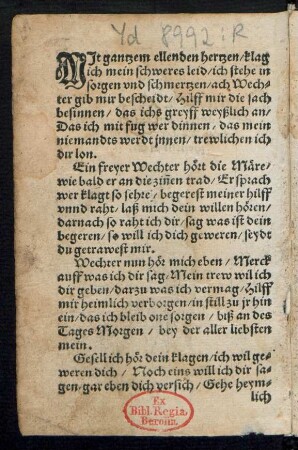 Yd 8992 : R
MIt gantzem ellenden hertzen / klag
ich mein schweres leid / ich stehe in
sorgen vnd schmertzen / ach Wech-
ter gib mir bescheidt / Hilff mir die sach
besinnen / das ichs greyff weyßlich an /
Das ich mit fug wer dinnen / das mein
niemandts werdt jnnen / trewlichen ich
dir lon.
Ein freyer Wechter hört die Märe /
wie bald er an die zinnen trad / Er sprach
wer klagt so sehre / begerest meiner hilff
vnnd raht / laß mich dein willen hören /
darnach so raht ich dir / sag was ist dein
begeren / so will ich dich geweren / seydt
du getrawest mir.
Wechter nun hör mich eben / Merck
auff was ich dir sag / Mein trew wil ich
dir geben / darzu was ich vermag / Hilff
mir heimlich verborgen / in still zu jr hin
ein / das ich bleib one sorgen / biß an des
Tages Morgen / bey der aller liebsten
mein.
Gesell ich hör dein klagen / ich wil ge-
weren dich / Noch eins will ich dir sa-
gen / gar eben dich versich / Gehe heym-
lich
Ex
Bibl. Regia
Berolin.